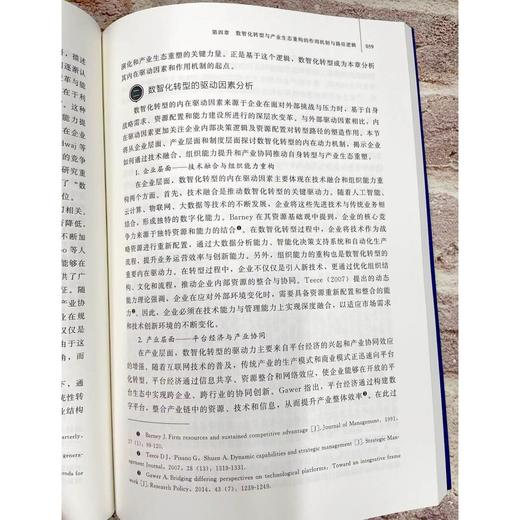 第四章 数智化转型与产业生态重构的作用机制与路径逻辑 059
演化和产业生态重塑的关键力量。正是基于这个逻辑，数智化转型成为本章分析
其内在驱动因素和作用机制的起点。
一 数智化转型的驱动因素分析
数智化转型的内在驱动因素来源于企业在面对外部挑战与压力时，基于自身
战略需求、资源配置和能力建设所进行的深层次变革。与外部驱动因素相比，内
在驱动因素更加关注企业内部决策逻辑及资源配置对转型路径的塑造作用。本节
将从企业层面、产业层面和制度层面探讨数智化转型的内在动力机制，揭示企业
如何通过技术融合、组织能力提升和产业协同推动自身转型与产业生态重塑。
1. 企业层面——技术融合与组织能力重构
在企业层面，数智化转型的内在驱动因素主要体现在技术融合和组织能力重
构两个方面。首先，技术融合是推动数智化转型的关键驱动力。随着人工智能、
云计算、物联网、大数据等技术的不断发展，企业将这些先进技术与传统业务相
结合，形成独特的数字化能力。Barney 在其资源基础观中提到，企业的核心竞
争力来源于独特资源和能力的结合❶。在数智化转型过程中，企业将技术作为战
略资源进行重新配置，通过大数据分析能力、智能化决策支持系统和自动化生产
流程，提升业务运营效率与创新能力。另外，组织能力的重构也是数智化转型的
重要内在驱动力。在转型过程中，企业不仅仅是引入新技术，更通过优化组织结
构、文化和流程，推动企业内部资源的整合与协同。Teece（2007）提出的动态
能力理论强调，企业在应对外部环境变化时，需要具备资源重新配置和整合的能
力❷。因此，企业必须在技术能力与管理能力上实现深度融合，以适应市场需求
和技术创新环境的不断变化。
2. 产业层面——平台经济与产业协同
在产业层面，数智化转型的驱动力主要来自平台经济的兴起和产业协同效应
的增强。随着互联网技术的普及，传统产业的生产模式和商业模式正迅速向平台
化转型。平台经济通过信息共享、资源整合和网络效应，使企业能够在开放的平
台生态中实现跨企业、跨行业的协同创新。Gawer 指出，平台经济通过构建数
字平台，整合产业链中的资源、技术和信息，从而提升产业整体效率❸。在此过
❶ Barney J. Firm resources and sustained competitive advantage [J]. Journal of Management, 1991,
17 (1): 99-120.
❷ Teece D J, Pisano G, Shuen A. Dynamic capabilities and strategic management [J]. Strategic Man-
agement Journal, 2007, 28 (13): 1319-1331.
❸ Gawer A. Bridging differing perspectives on technological platforms: Toward an integrative frame
work [J]. Research Policy, 2014, 43 (7): 1239-1249.